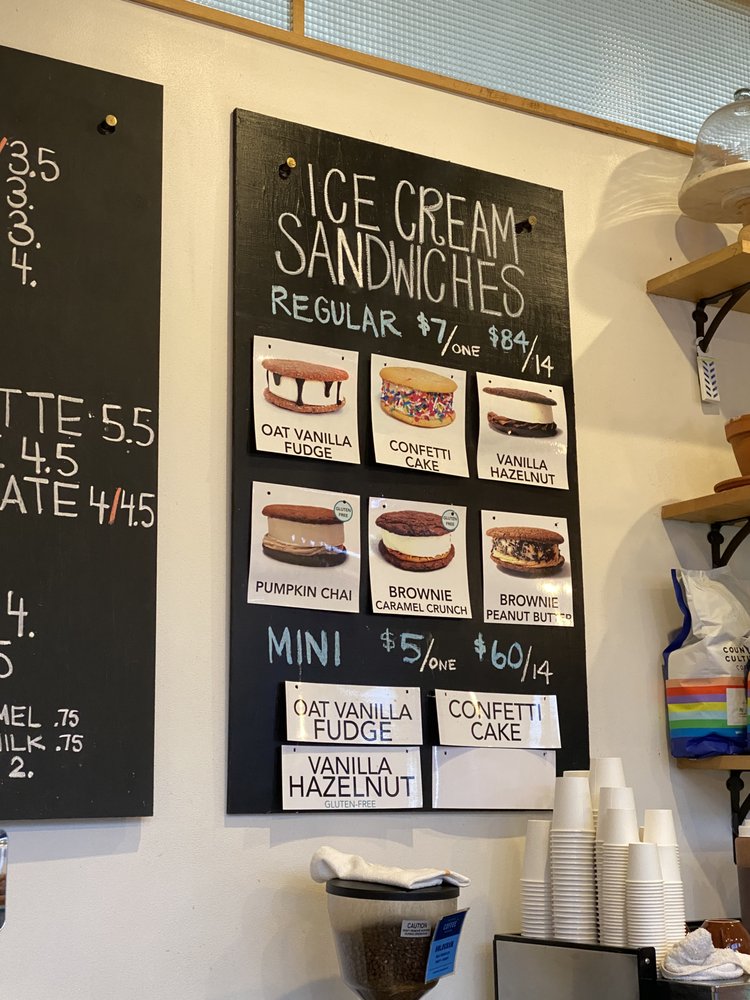 /3.5
3.
3.
4.
TTE 5.5
4.5
ATE 4/4.5
4.
5
MEL .75
ILK .75
2.
ICE CREAM
SANDWICHES
REGULAR $7/ONE $84/14
OAT VANILLA
FUDGE
CONFETTI
CAKE
VANILLA
HAZELNUT
GLUTEN
FREE
PUMPKIN CHAI
GLUTEN
FREE
BROWNIE
CARAMEL CRUNCH
BROWNIE
PEANUT BUTTER
MINI $5/ONE $60/14
OAT VANILLA
FUDGE
CONFETTI
CAKE
VANILLA
HAZELNUT
GLUTEN-FREE
COUN
CULT
CAUTION
COFFEE